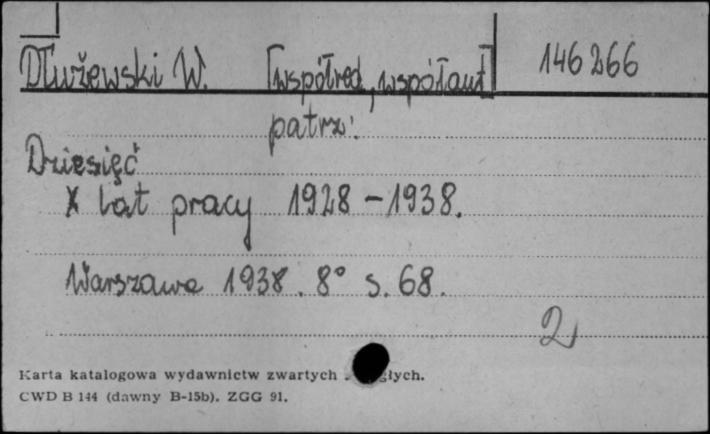 Dłużewski W. [współred., współaut] 146266
patrz:
Dziesięć
X lat pracy 1928-1938.
Warszawa 1938. 8° s. 68.
2
Karta katalogowa wydawnictw zwartych i ciągłych.
CWD B 144 (dawny B-15b). ZGG 91.